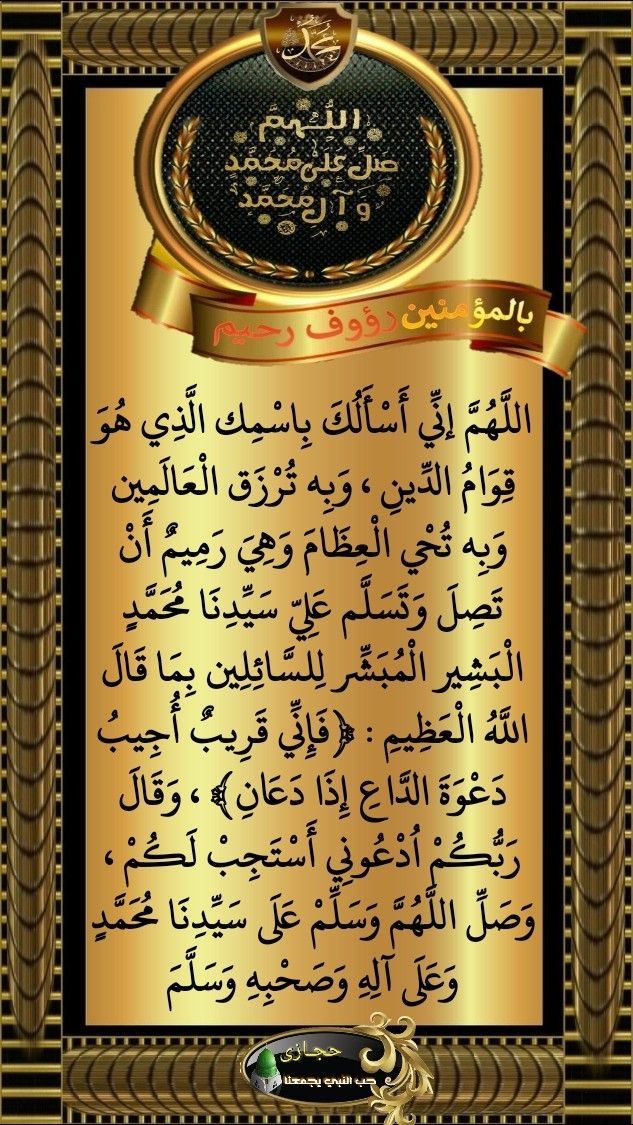 محمد
اللهم
صَلِّ عَلَىٰ مُحَمَّدٍ
وَ آلِ مُحَمَّدٍ
بالمؤمنين رؤوف رحيم
اللَّهُمَّ إِنِّي أَسْأَلُكَ بِاسْمِك الَّذِي هُوَ
قِوَامُ الدِّينِ ، وَبِه تُرْزَق الْعَالَمِين
وَبِه تُحْي الْعِظَامَ وَهِيَ رَمِيمٌ أَنْ
تَصِلَ وَتَسَلَّم عَلِيّ سَيِّدِنَا مُحَمَّدٍ
الْبَشِير الْمُبَشِّر لِلسَّائِلِين بِمَا قَالَ
اللَّهُ الْعَظِيمِ : ﴿فَإِنِّي قَرِيبٌ أُجِيبُ
دَعْوَةَ الدَّاعِ إِذَا دَعَانِ﴾ ، وَقَالَ
رَبُّكُمْ اُدْعُونِي أَسْتَجِبْ لَكُمْ ،
وَصَلِّ اللَّهُمَّ وَسَلِّمْ عَلَى سَيِّدِنَا مُحَمَّدٍ
وَعَلَى آلِهِ وَصَحْبِهِ وَسَلَّمَ
حجازى
حب النبي يجمعنا